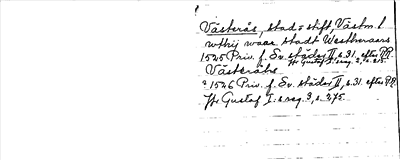 Västerås, stad o stift, Västm. l
wthij waar stadt Westheraars
1525 Priv. f. Sv. städer II, s. 31. efter RR.
Hr Gustaf I: s reg. 2, s. 215.
Västeråhs
1526 Priv. f. Sv. städer II, s. 31. efter RR.
Hr Gustaf I: s reg. 3, s. 275.